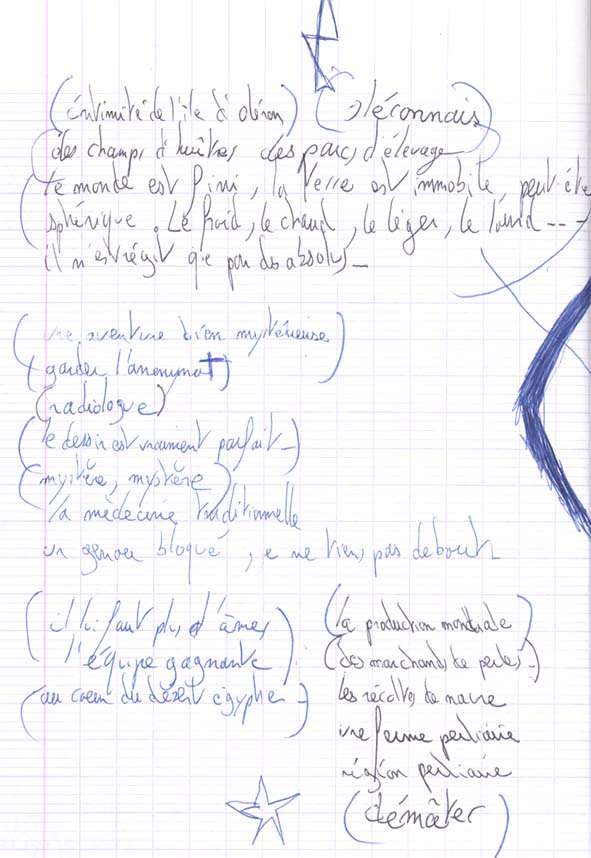 (intimité de l'île d'oléron) (Sléconnais)
des champs d'huîtres des parcs d'élevage
le monde est fini, la terre est immobile, peut être
sphérique. Le froid, le chaud, le léger, le lourd---
il n'est régit que par des absolus_
(une aventure bien mystérieuse
garder l'anonymat)
(radiologue)
(le dessin est vraiment parfait_)
(mystère, mystère)
la médecine traditionnelle
un genou bloqué, je ne tiens pas debout
(il lui faut plus d'âmes
l'équipe gagnante
(au coeur du désert égyptien_)
(la production mondiale)
(des marchands de perles_)
les récoltes de nacre
une ferme perlière
région perlière
(démâter)